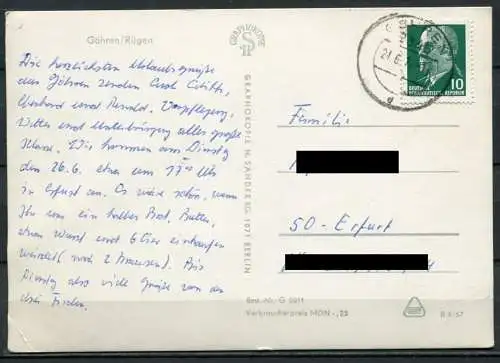 Göhren/Rügen
Die herzlichsten Urlaubsgrüße
aus Göhren senden Euch
und Verpflegung,
Wetter und Unterbringung alles große
Klasse. Wir kommen am Dienstag
den 26.6. etwa um 17 Uhr
in Erfurt an. Es wäre schön, wenn
Ihr uns ein halbes Brot, Butter,
etwas Wurst und 6 Eier einkaufen
würdet (und 2 Brausen). Bis
Dienstag also viele Grüße von den
drei
GRAPHOKOPIE
GRAPHOKOPIE H. SANDER KG, 1071 BERLIN
10
DEUTSCHE
DEMOKRATISCHE REPUBLIK
Familie
50-Erfurt
Best.-Nr. G 5011
Verbraucherpreis MDN -,25
B 6/67